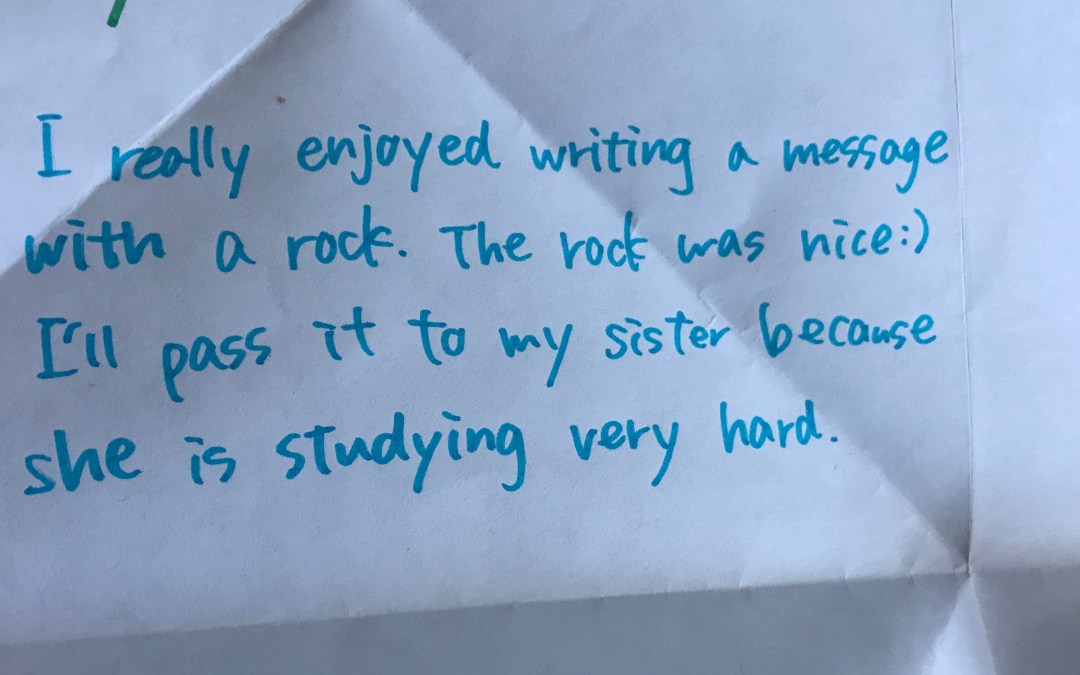 I really enjoyed writing a message
with a rock. The rock was nice:)
I'll pass it to my sister because
she is studying very hard.